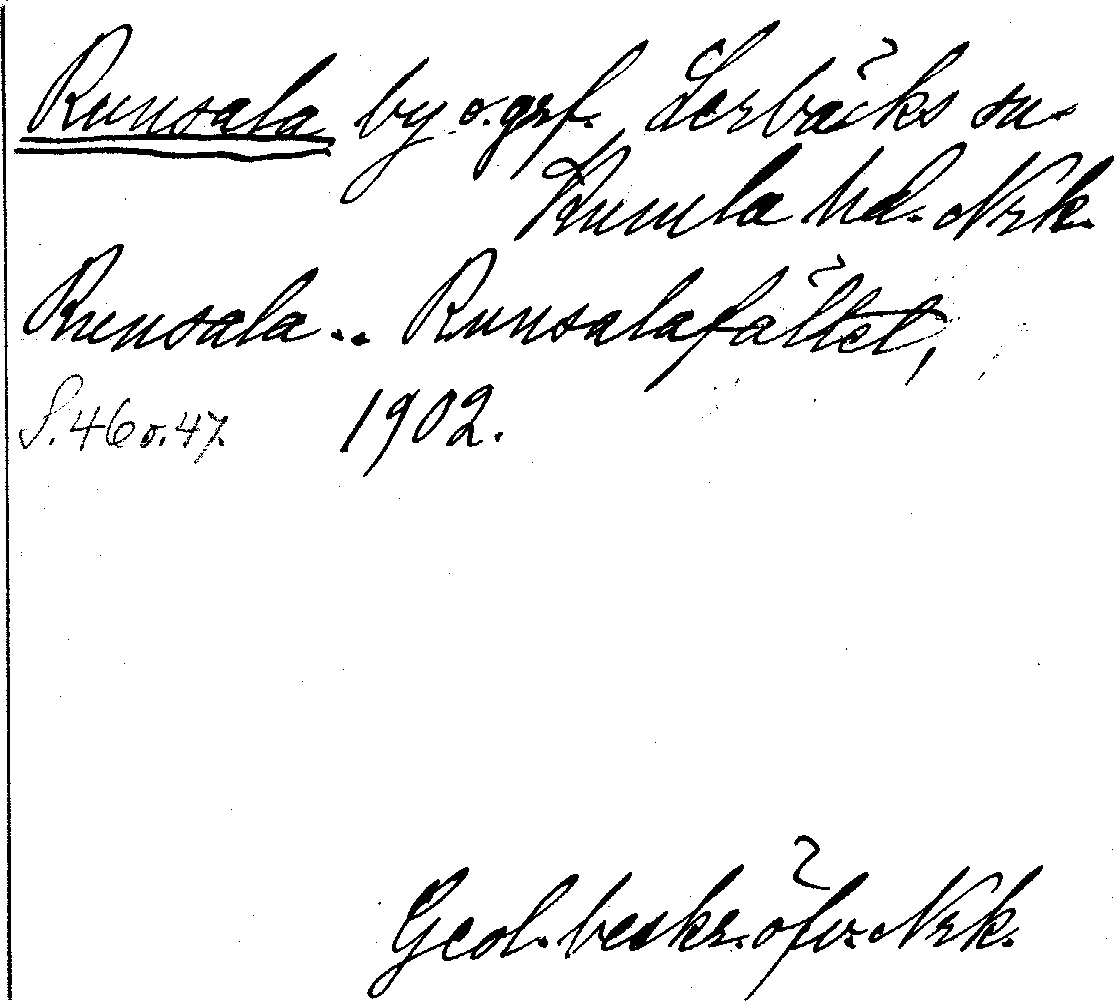 Runsala by o. grf. Lerbäcks sn.
Kumla hd. Nrk.
Runsala .. Runsalafältet,
S. 46 o. 47. 1902.
Geol. beskr. öfv. Nrk.